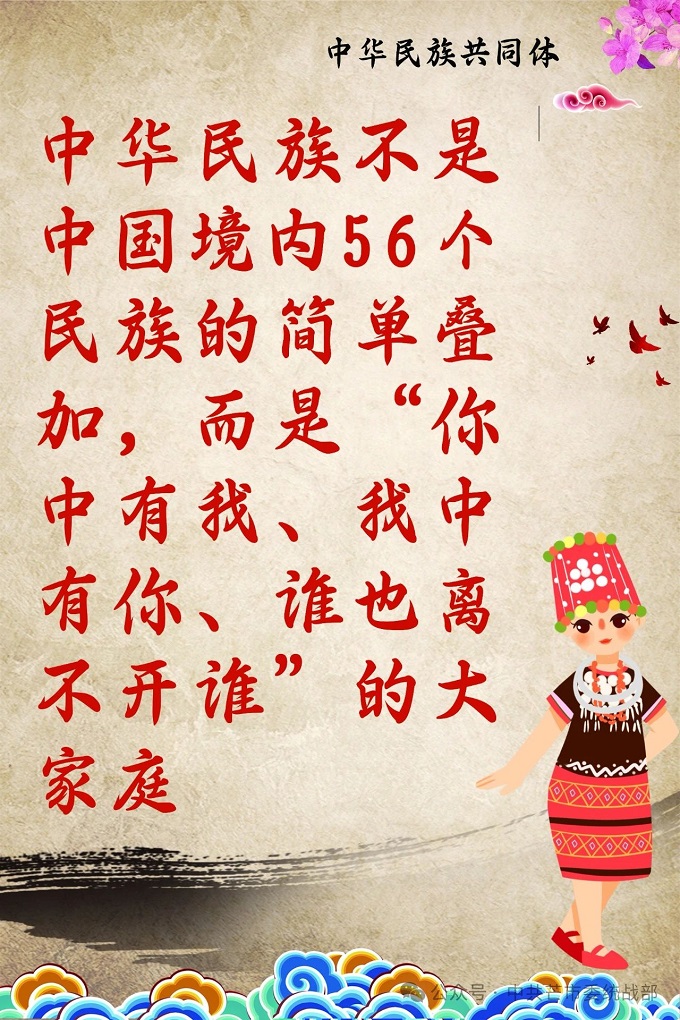 中华民族共同体
中华民族不是
中国境内56个
民族的简单叠
加，而是“你
中有我、我中
有你、谁也离
不开谁”的大
家庭
公众号·中共芒市委统战部